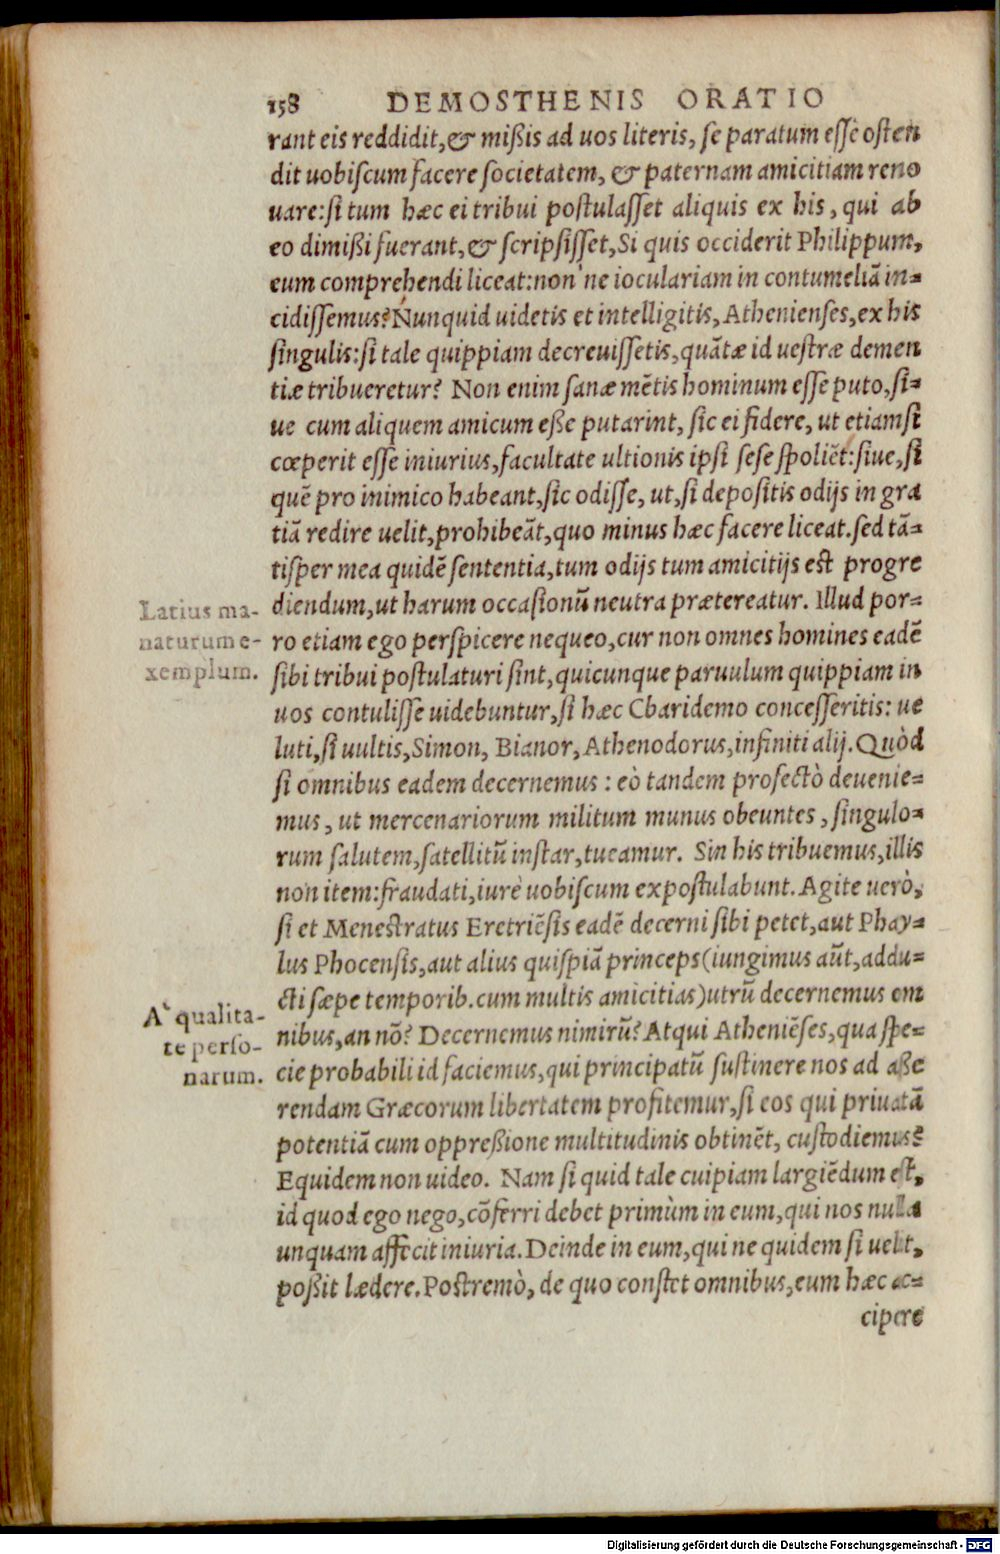 158 DEMOSTHENIS ORATIO
rant eis reddidit, & mißis ad uos literis, se paratum esse osten
dit uobiscum facere societatem, & paternam amicitiam reno
uare: si tum hæc ei tribui postulasset aliquis ex his, qui ab
eo dimißi fuerant, & scripsisset, Si quis occiderit Philippum,
eum comprehendi liceat: non'ne ioculariam in contumeliã in=
cidissemus? Nunquid uidetis et intelligitis, Athenienses, ex his
singulis: si tale quippiam decreuissetis, quãtæ id uestræ demen
tiæ tribueretur? Non enim sanæ mẽtis hominum esse puto, si=
ue cum aliquem amicum eße putarint, sic ei fidere, ut etiamsi
cœperit esse iniurius, facultate ultionis ipsi sese spoliẽt: siue, si
quẽ pro inimico habeant, sic odisse, ut, si depositis odijs in gra
tiã redire uelit, prohibeãt, quo minus hæc facere liceat. sed tã=
tisper mea quidẽ sententia, tum odijs tum amicitijs est progre
diendum, ut harum occasionũ neutra prætereatur. Illud por=
ro etiam ego perspicere nequeo, cur non omnes homines eadẽ
sibi tribui postulaturi sint, quicunque paruulum quippiam in
uos contulisse uidebuntur, si hæc Charidemo concesseritis: ue
luti, si uultis, Simon, Bianor, Athenodorus, infiniti alij. Quòd
si omnibus eadem decernemus: eò tandem profectò deuenie=
mus, ut mercenariorum militum munus obeuntes, singulo=
rum salutem, satellitũ instar, tueamur. Sin his tribuemus, illis
non item: fraudati, iurè uobiscum expostulabunt. Agite uerò,
si et Menestratus Eretriẽsis eadẽ decerni sibi petet, aut Phay=
lus Phocensis, aut alius quispiã princeps (iungimus aũt, addu=
cti sæpe temporib. cum multis amicitias) utrũ decernemus om
nibus, an nõ? Decernemus nimirũ? Atqui Atheniẽses, qua spe=
cie probabili id faciemus, qui principatũ sustinere nos ad aße
rendam Græcorum libertatem profitemur, si eos qui priuatã
potentiã cum oppreßione multitudinis obtinẽt, custodiemus?
Equidem non uideo. Nam si quid tale cuipiam largiẽdum est,
id quod ego nego, cõferri debet primùm in eum, qui nos nulla
unquam affecit iniuria. Deinde in eum, qui ne quidem si uelit,
poßit lædere. Postremò, de quo constet omnibus, eum hæc ac=
cipere
Latius ma-
naturum e-
xemplum.
A` qualita-
te perso-
narum.
Digitalisierung gefördert durch die Deutsche Forschungsgemeinschaft - DFG